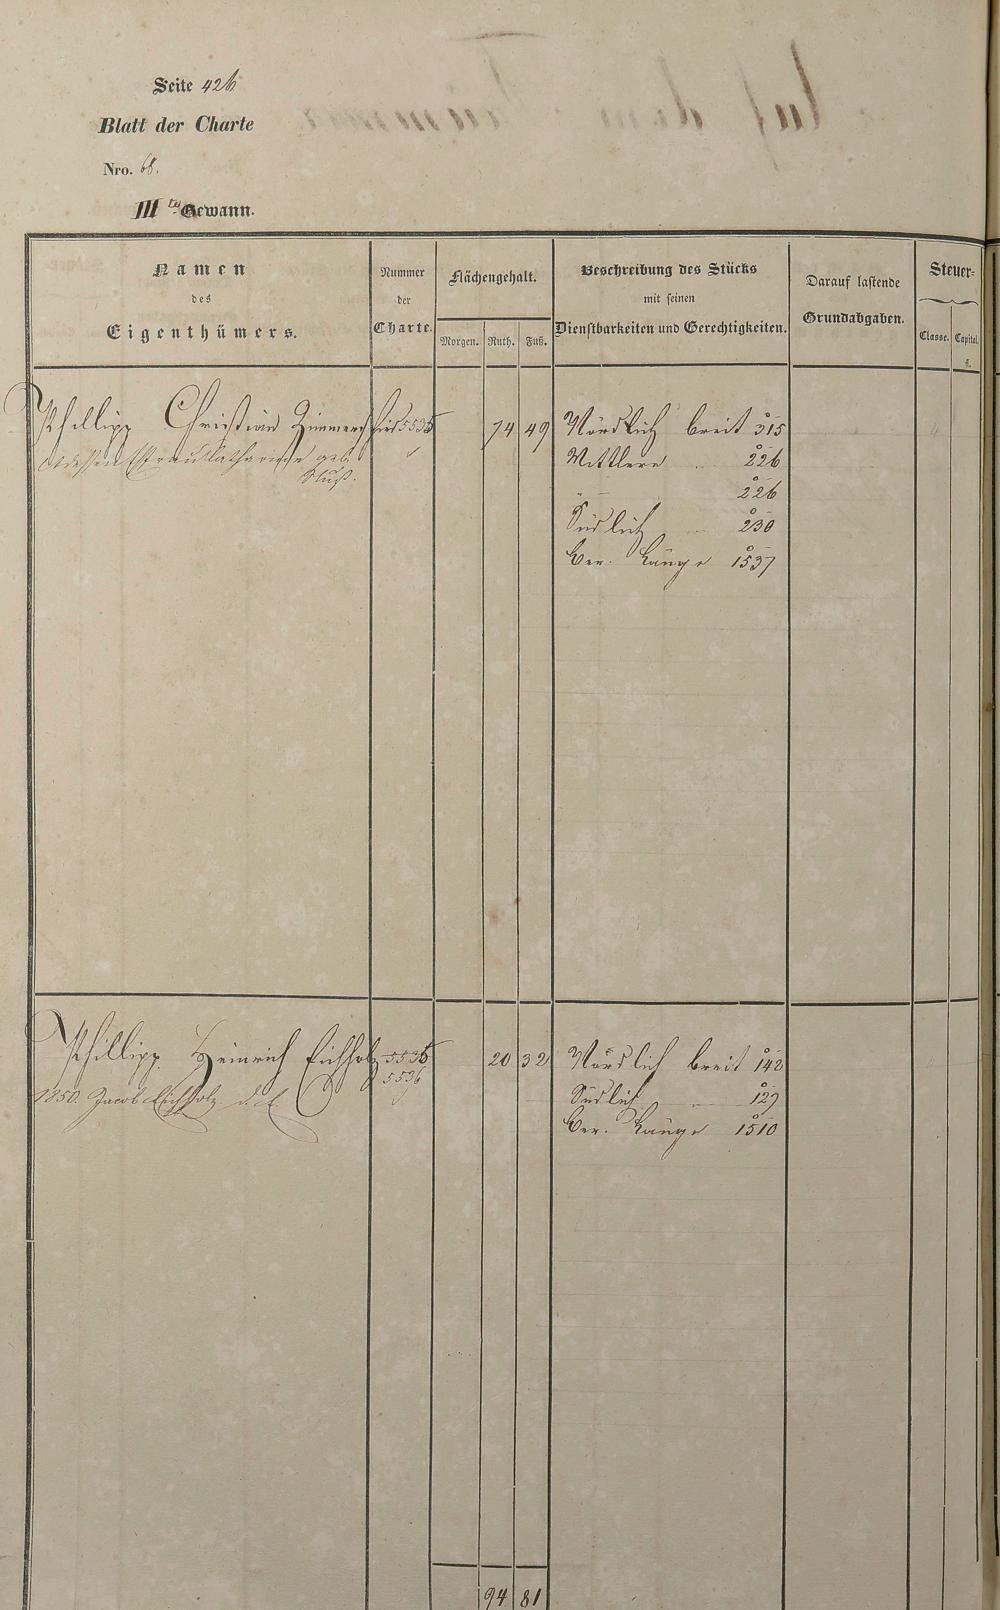 Seite 426
Blatt der Charte
Nro. 68.
III te Gewann.
Namen des Eigenthümers.
Nummer der Charte.
Flächengehalt.
Morgen. Ruth. Fuß.
Beschreibung des Stücks mit seinen Dienstbarkeiten und Gerechtigkeiten.
Darauf lastende Grundabgaben.
Steuer-
Classe. Capital. fl.
Phillipp Christian Zimmerschied 5535 74 49 Nördlich breit 315
dessen Frau Catharine geb. Mittlere 226
226
Südlich 230
Ver. Länge 1537
Phillipp Heinrich Eichholz 5535 20 32 Nördlich breit 142
5536
1850. Jacob Eichholz Südlich 127
Ver. Länge 1510
94 81